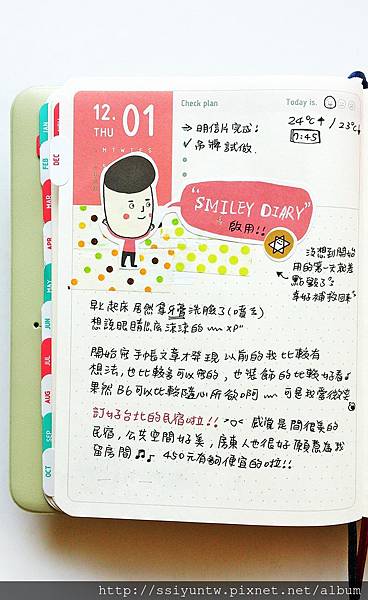 12. 01
THU
Check plan
Today is.
M T W T F S
⇒ 明信片完成:
✓ 吊牌試做.
24°C↑ / 23°C
7:45
"SMILEY DIARY"
啟用!!
沒想到開始
用的第一天就差
點毀了
幸好補救回來
早上起床居然拿牙膏洗臉了(嘻笑)
想說眼睛怎麼涼涼的 XP"
開始寫手帳文章才發現以前的我比較有
想法,也比較多可以寫的,也裝飾的比較好看
果然B6可以比較隨心所欲啊
訂好台北的民宿啦!! 感覺是間很美的
民宿,公共空間好美,房東人也很好願意為我
留房間♫♪ 450元有夠便宜的啦!!
JAN
FEB
MAR
APR
MAY
JUN
JUL
AUG
SEP
OCT
DEC
http://ssiyuntw.pixnet.net/album